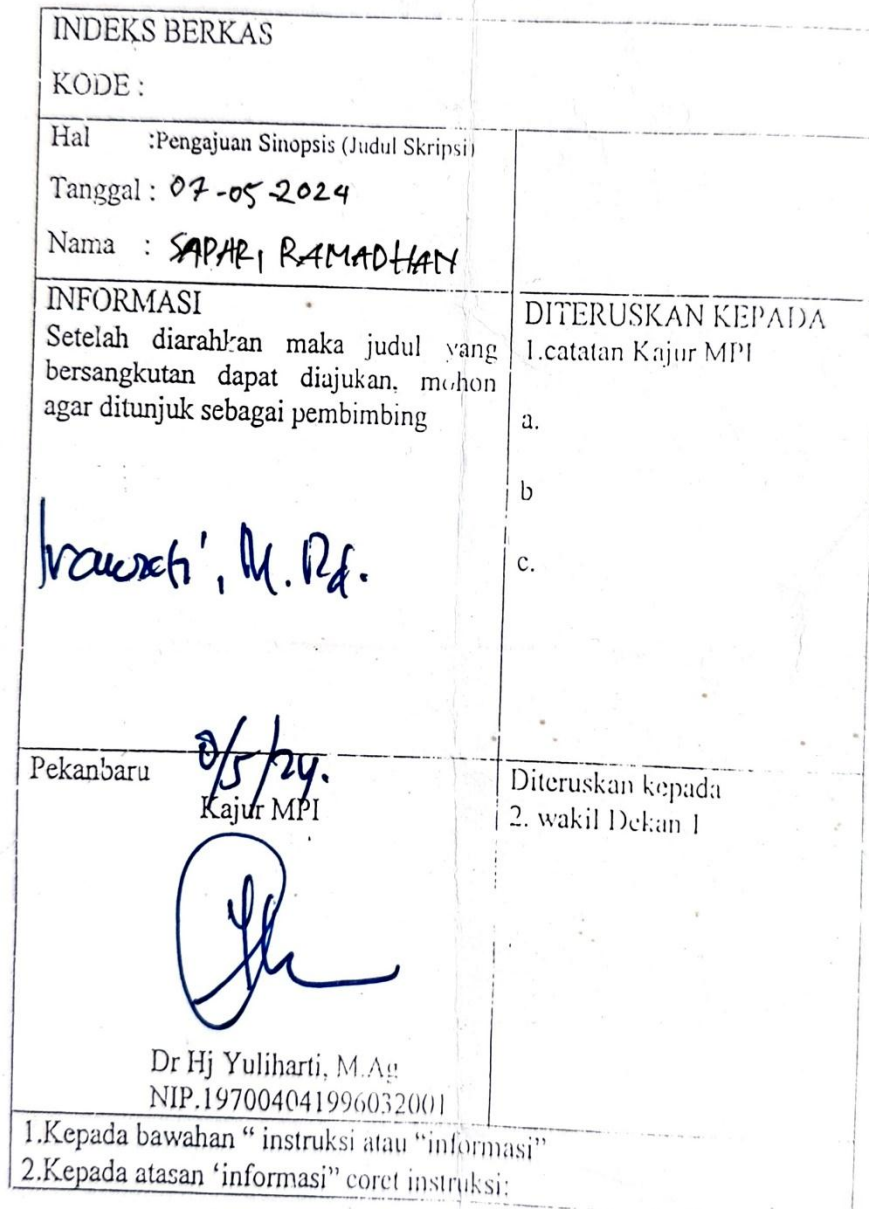 INDEKS BERKAS
KODE :
Hal :Pengajuan Sinopsis (Judul Skripsi)
Tanggal : 07-05-2024
Nama : SAPARI RAMADHAN
INFORMASI
Setelah diarahkan maka judul yang
bersangkutan dapat diajukan, mohon
agar ditunjuk sebagai pembimbing
Irawati, M.Pd.
DITERUSKAN KEPADA
1.catatan Kajur MPI
a.
b
c.
Pekanbaru 8/5/24.
Kajur MPI
Dr Hj Yuliharti, M.Ag
NIP.197004041996032001
Diteruskan kepada
2. wakil Dekan 1
1.Kepada bawahan “ instruksi atau “informasi”
2.Kepada atasan ‘informasi” coret instruksi: